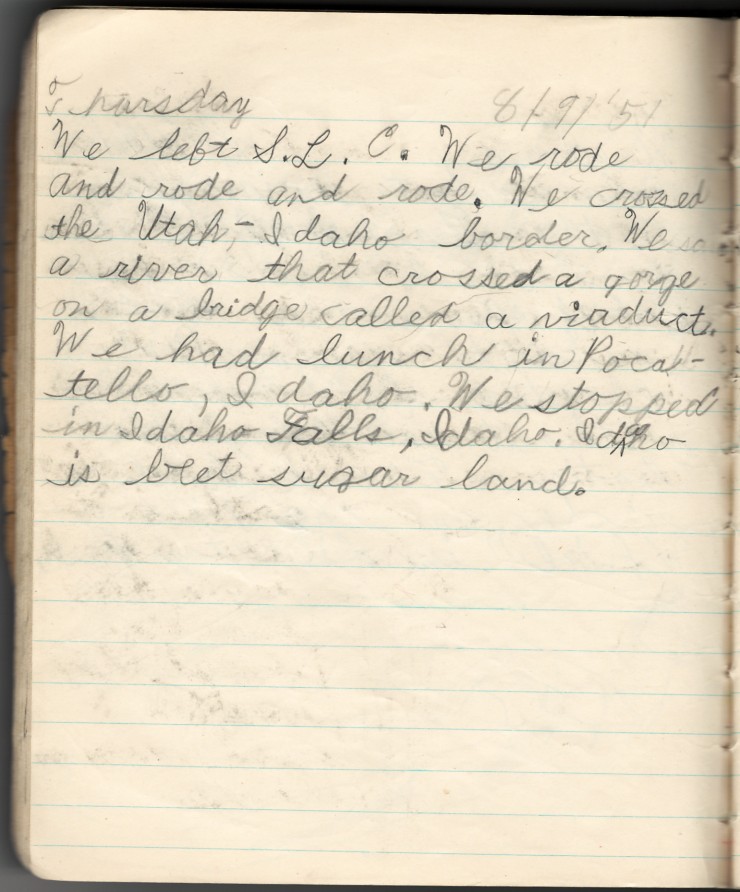 Thursday 8/9/'51
We left S.L.C. We rode
and rode and rode. We crossed
the Utah-Idaho border. We
a river that crossed a gorge
on a bridge called a viaduct.
We had lunch in Poca-
tello, Idaho. We stopped
in Idaho Falls, Idaho. Idaho
is beet sugar land.